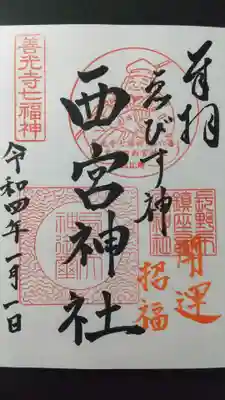 奉拝
ゑびす神
西宮神社
開運
招福
善光寺七福神
令和四年一月一日